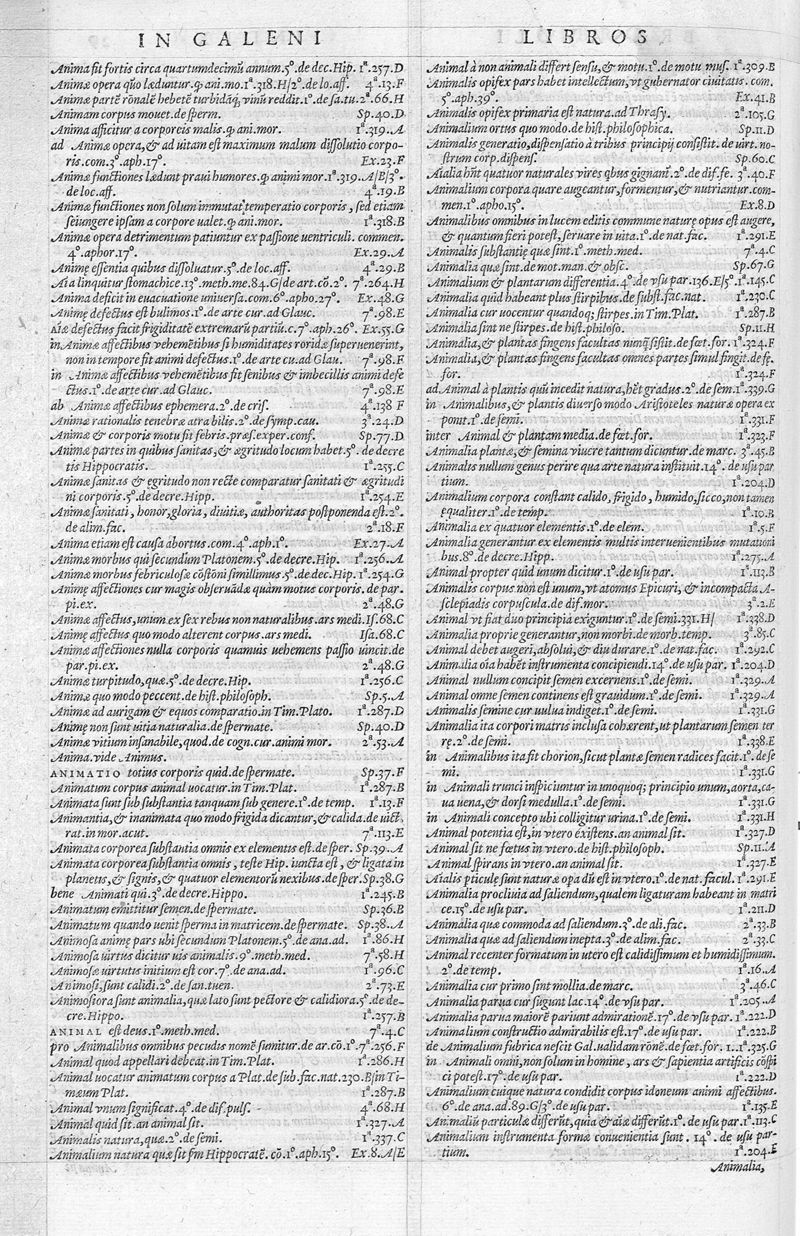 IN GALENI
Anima fit fortis circa quartumdecimũ annum.5°.de dec.Hip. 1ª.257.D
Animæ opera quo læduntur.q. ani.mo.1ª.318.H/2°.de lo.aff. 4ª.13.F
Animæ partẽ rõnalẽ hebetẽ turbidãq, vinũ reddit.1°.de sa.tu.2ª.66.H
Animam corpus mouet.de sperm. Sp.40.D
Anima afficitur a corporeis malis.q. ani.mor. 1ª.319.A
ad Animæ opera,& ad uitam est maximum malum dissolutio corpo-
ris.com.3°.aph.17°. Ex.23.F
Animæ functiones lædunt praui humores.q. animi mor.1ª.319.A/E/3°.
de loc.aff. 4ª.19.B
Animæ functiones non solum immutat temperatio corporis, sed etiam
seiungere ipsam a corpore ualet.q. ani.mor. 1ª.318.B
Animæ opera detrimentum patiuntur ex passione uentriculi. commen.
4°.aphor.17°. Ex.29.A
Animę essentia quibus dissoluatur.5°.de loc.aff. 4ª.29.B
Aĩa linquitur stomachice.13°.meth.me.84.G/de art.cõ.2°. 7ª.264.H
Anima deficit in euacuatione uniuersa.com.6°.apho.27°. Ex.48.G
Animę defectus est bulimos.1°.de arte cur.ad Glauc. 7ª.98.E
Aĩæ defectus facit frigiditatẽ extremarũ partiũ.c.7°.aph.26°. Ex.55.G
in Animæ affectibus vehemẽtibus si humiditates roridæ superuenerint,
non in tempore fit animi defectus.1°.de arte cu.ad Glau. 7ª.98.F
in Animæ affectibus vehemẽtibus fit senibus & imbecillis animi defe
ctus.1°.de arte cur.ad Glauc. 7ª.98.E
ab Animæ affectibus ephemera.2°.de cris. 4ª.138 F
Animæ rationalis tenebræ atra bilis.2°.de symp.cau. 3ª.24.D
Animæ & corporis motu fit febris.præs.exper.conf. Sp.77.D
Animæ partes in quibus sanitas,& ægritudo locum habet.5°.de decre
tis Hippocratis. 1ª.255.C
Animæ sanitas & egritudo non recte comparatur sanitati & ægritudi
ni corporis.5°.de decre.Hipp. 1ª.254.E
Animæ sanitati, honor,gloria, diuitiæ, authoritas postponenda est.2°.
de alim.fac. 2ª.18.F
Anima etiam est causa abortus.com.4°.aph.1°. Ex.27.A
Animæ morbus qui secundum Platonem.5°.de decre.Hip. 1ª.256.A
Animæ morbus febriculosæ cõstõni simillimus.5°.de dec.Hip. 1ª.254.G
Animę affectiones cur magis obseruãdæ quàm motus corporis. de par.
pi.ex. 2ª.48.G
Animæ affectus,unum ex sex rebus non naturalibus.ars medi. Isa.68.C
Animę affectus quo modo alterent corpus.ars medi. Isa.68.C
Animæ affectiones nulla corporis quamuis uehemens passio uincit.de
par.pi.ex. 2ª.48.G
Animæ turpitudo, quæ.5°.de decre.Hip. 1ª.256.C
Animæ quo modo peccent.de hist.philosoph. Sp.5.A
Animæ ad aurigam & equos comparatio.in Tim.Plato. 1ª.287.D
Animę non sunt uitia naturalia.de spermate. Sp.40.D
Animæ vitium insanabile, quod.de cogn.cur.animi mor. 2ª.53.A
Anima.vide Animus.
ANIMATIO totius corporis quid.de spermate. Sp.37.F
Animatum corpus animal uocatur.in Tim.Plat. 1ª.287.B
Animata sunt sub substantia tanquam sub genere.1°.de temp. 1ª.13.F
Animantia,& inanimata quo modo frigida dicantur,& calida.de uict
rat.in mor.acut. 7ª.113.E
Animata corporea substantia omnis ex elementis est.de sper. Sp.39.A
Animata corporea substantia omnis, teste Hip. iuncta est, & ligata in
planetis,& signis,& quatuor elementorũ nexibus.de sper. Sp.38.G
bene Animati qui.3°.de decre.Hippo. 1ª.245.B
Animatum emittitur semen.de spermate. Sp.36.B
Animatum quando uenit sperma in matricem.de spermate. Sp.38.A
Animosa animę pars ubi secundum Platonem.5°.de ana.ad. 1ª.86.H
Animosa uirtus dicitur uis animalis.9°.meth.med. 7ª.58.H
Animosæ uirtutis initium est cor.7°.de ana.ad. 1ª.96.C
Animosi,sunt calidi.2°.de san.tuen. 2ª.73.E
Animosiora sunt animalia,quæ lato sunt pectore & calidiora.5°.de de-
cre.Hippo. 1ª.257.B
ANIMAL est deus.1°.meth.med. 7ª.4.C
pro Animalibus omnibus pecudis nomẽ sumitur.de ar.cõ.1°.7ª.256.F
Animal quod appellari debeat.in Tim.Plat. 1ª.286.H
Animal uocatur animatum corpus a Plat.de sub.fac.nat.230.E/in Ti-
mæum Plat. 1ª.287.B
Animal vnum significat.4°.de dif.puls. 4ª.68.H
Animal quid sit.an animal sit. 1ª.327.A
Animalis natura,quæ.2°.de semi. 1ª.337.C
Animalium natura quæ sit s̃m Hippocratẽ. cõ.1°.aph.15°. Ex.8.A/E
LIBROS
Animal à non animali differt sensu,& motu.1°.de motu mus. 1ª.309.B
Animalis opifex pars habet intellectum,vt gubernator ciuitatis. com.
5°.aph.39°. Ex.41.B
Animalis opifex primaria est natura.ad Thrasy. 2ª.105.G
Animalium ortus quo modo.de hist.philosophica. Sp.11.D
Animalis generatio,dispensatio à tribus principij consistit.de uirt.no-
strum corp.dispens. Sp.60.C
Aĩalia hñt quatuor naturales vires qbus gignãní.2°.de dif.fe. 3ª.40.F
Animalium corpora quare augeantur,formentur,& nutriantur.com-
men.1°.apho.15°. Ex.8.D
Animalibus omnibus in lucem editis commune naturę opus est augere,
& quantum fieri potest,seruare in uita.1°.de nat.fac. 1ª.291.E
Animalis substantię quæ sint.1°.meth.med. 7ª.4.C
Animalia quæ sint.de mot.man.& obsc. Sp.67.G
Animalium & plantarum differentia.4°.de vsu par.136.E/5°.1ª.145.C
Animalia quid habeant plus stirpibus.de subst.fac.nat. 1ª.230.C
Animalia cur uocentur quandoq; stirpes.in Tim.Plat. 1ª.287.B
Animalia sint ne stirpes.de hist.philoso. Sp.11.H
Animalia,& plantas fingens facultas nunq̃ sistit.de fœt.for. 1ª.324.F
Animalia,& plantas fingens facultas omnes partes simul fingit.de fę.
for. 1ª.324.F
ad Animal à plantis quũ incedit natura,hẽt gradus.2°.de sem.1ª.339.G
in Animalibus,& plantis diuerso modo Aristoteles naturæ opera ex
ponit.1°.de semi. 1ª.331.F
inter Animal & plantam media.de fœt.for. 1ª.323.F
Animalia plantæ,& semina viuere tantum dicuntur.de marc. 3ª.45.B
Animalis nullum genus perire qua arte natura instituit.14°. de usu par
tium. 1ª.204.D
Animalium corpora constant calido, frigido, humido,sicco,non tamen
ęqualiter.1°.de temp. 1ª.10.B
Animalia ex quatuor elementis.1°.de elem. 1ª.5.F
Animalia generantur ex elementis multis interuenientibus mutationi
bus.8°.de decre.Hipp. 1ª.275.A
Animal propter quid unum dicitur.1°.de usu par. 1ª.113.B
Animalis corpus non est unum,vt atomus Epicuri, & incompacta A-
sclepiadis corpuscula.de dif.mor. 3ª.2.E
Animal vt fiat duo principia exiguntur.1°.de semi.331.H/ 1ª.338.D
Animalia proprie generantur,non morbi.de morb.temp. 3ª.85.C
Animal debet augeri,absolui,& diu durare.1°.de nat.fac. 1ª.292.C
Animalia oĩa habẽt instrumenta concipiendi.14°.de usu par. 1ª.204.D
Animal nullum concipit semen excernens.1°.de semi. 1ª.329.A
Animal omne semen continens est grauidum.1°.de semi. 1ª.329.A
Animalis semine cur uulua indiget.1°.de semi. 1ª.331.G
Animalia ita corpori matris inclusa cohærent,ut plantarum semen ter
rę.2°.de semi. 1ª.338.E
in Animalibus ita fit chorion,sicut plantæ semen radices facit.1°.de se
mi. 1ª.331.G
in Animali trunci inspiciuntur in unoquoq; principio unum,aorta,ca-
ua uena,& dorsi medulla.1°.de semi. 1ª.331.G
in Animali concepto ubi colligitur urina.1°.de semi. 1ª.331.H
Animal potentia est,in vtero existens.an animal sit. 1ª.327.D
Animal sit ne fœtus in vtero.de hist.philosoph. Sp.11.A
Animal spirans in vtero.an animal sit. 1ª.327.E
Aĩalis pticulę sunt naturæ opa dũ est in vtero.1°.de nat.facul. 1ª.291.E
Animalia procliuia ad saliendum,qualem ligaturam habeant in matri
ce.15°.de usu par. 1ª.211.D
Animalia quæ commoda ad saliendum.3°.de ali.fac. 2ª.33.B
Animalia quæ ad saliendum inepta.3°.de alim.fac. 2ª.33.C
Animal recenter formatum in utero est calidissimum et humidissimum.
2°.de temp. 1ª.16.A
Animalia cur primo sint mollia.de marc. 3ª.46.C
Animalia parua cur sugunt lac.14°.de vsu par. 1ª.205.A
Animalia parua maiorẽ pariunt admirationẽ.17°.de vsu par.1ª.222.D
Animalium constructio admirabilis est.17°.de usu par. 1ª.222.B
de Animalium fabrica nescit Gal.ualidam rõnẽ.de fœt.for. 1.1ª.325.G
in Animali omni,non solum in homine, ars & sapientia artificis cõspi
ci potest.17°.de usu par. 1ª.222.D
Animalium cuique natura condidit corpus idoneum animi affectibus.
6°.de ana.ad.89.G/3°.de usu par. 1ª.135.E
Animaliũ particulæ differũt,quia & aĩæ differũt.1°.de usu par.1ª.113.C
Animalium instrumenta formæ conuenientia sunt. 14°. de usu par-
tium. 1ª.204.E
Animalia,